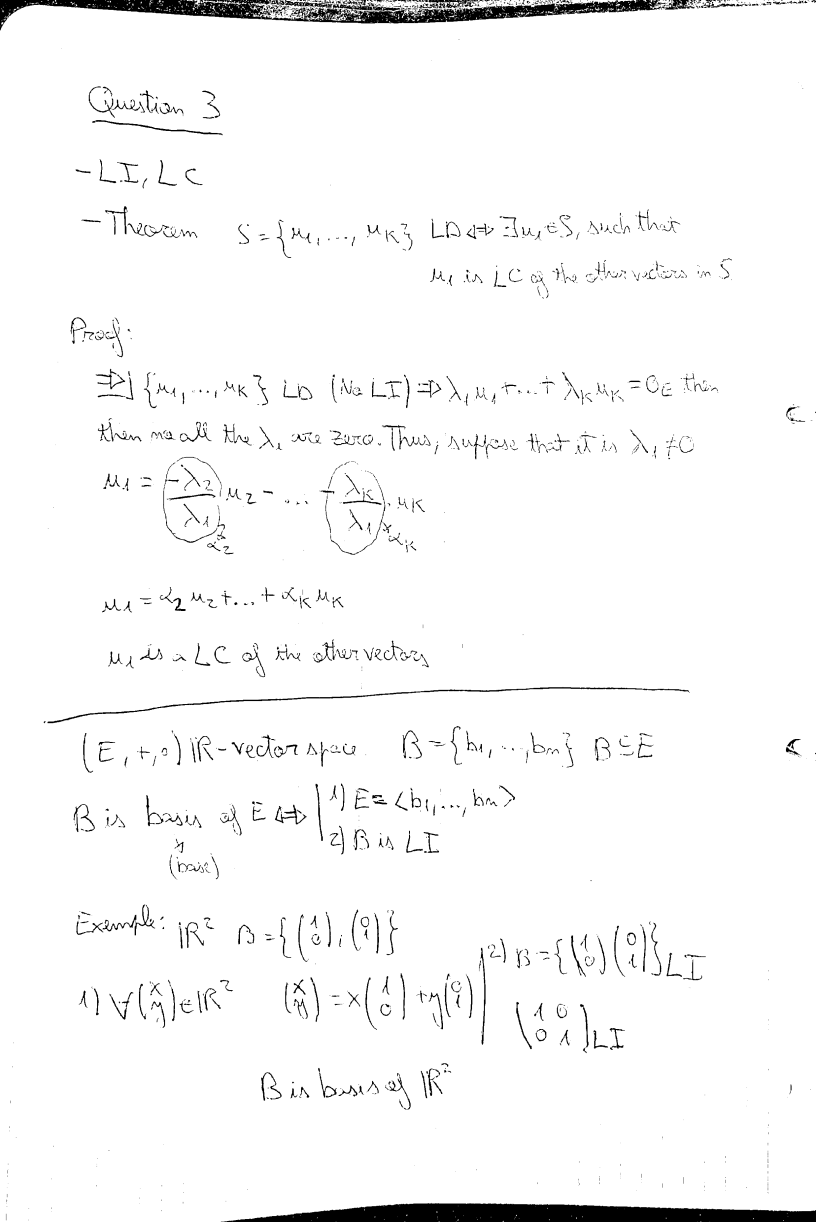 Question 3
- LI, LC
- Theorem S = {u₁, ..., u_K} LD ⇔ ∃u₁ ∈ S, such that
u₁ is LC of the other vectors in S
Proof:
⇒| {u₁, ..., u_K} LD (No LI) ⇒ λ₁u₁ + ... + λ_K u_K = 0_E then
then no all the λ₁ are zero. Thus, suppose that it is λ₁ ≠ 0
u₁ = (-λ₂/λ₁) u₂ - ... - (λ_K/λ₁) · u_K
α₂ α_K
u₁ = α₂u₂ + ... + α_K u_K
u₁ is a LC of the other vectors
(E, +, ∘) ℝ-vector space B = {b₁, ..., bₙ} B ⊆ E
B is basis of E ⇔ | 1) E = <b₁, ..., bₙ>
2) B is LI
(base)
Exemple: ℝ² B = {(1 0), (0 1)}
1) ∀(x y) ∈ ℝ² (x y) = x(1 0) + y(0 1)
2) B = {(1 0) (0 1)} LI
(1 0
0 1) LI
B is basis of ℝ²